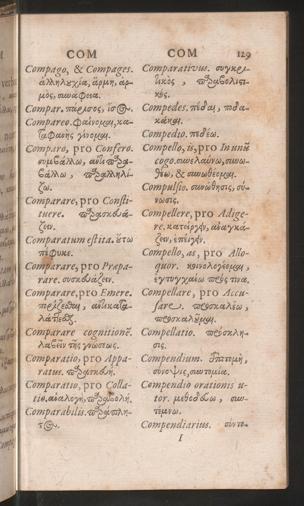 COM
Compago, & Compages.
ἀλληλουχία, ἅρμη, ἁρ-
μὸς, συνάφεια.
Compar. πάρισος, ἴσος.
Compareo. φαίνομαι, κα-
ταφανὴς γίνομαι.
Comparo, pro Confero.
συμβάλλω, ἀντιπαρα-
βάλλω, παραλληλί-
ζω.
Comparare, pro Consti-
tuere. παρασκευά-
ζειν.
Comparatum est ita. οὕτω
πέφυκε.
Comparare, pro Præpa-
rare. συσκευάζειν.
Comparare, pro Emere.
ἀντικαταλ-
λάττεσθαι.
Comparare cognitionẽ.
λαβεῖν τῆς γνώσεως.
Comparatio, pro Appa-
ratus. παρασκευή.
Comparatio, pro Colla-
tio, ἀναλογὴ, παραβολή.
Comparabilis. παράπλη-
τος.
COM 129
Comparativus. συγκρι-
τικὸς, παραβολιτι-
κός.
Compedes. πέδαι, ποδα-
κάκαι.
Compedio. πεδέω.
Compello, is, pro In unũ
cogo. συνελαύνω, συνω-
θέω, & συνωθέομαι.
Compulsio. συνώθησις, σύ-
νωσις.
Compellere, pro Adige-
re. κατείργειν, ἀναγκά-
ζειν, ἐπείγειν.
Compello, as, pro Allo-
quor. κοινολογέομαι,
ἐντυγχάνω πρός τινα.
Compellare, pro Accu-
sare. προσκαλέω,
προσκαλοῦμαι.
Compellatio. πρόσκλη-
σις.
Compendium. ἐπιτομὴ,
σύνοψις, συντομία.
Compendio orationis u-
tor. μεθοδεύω, συν-
τέμνω.
Compendiarius. σύντο-
I